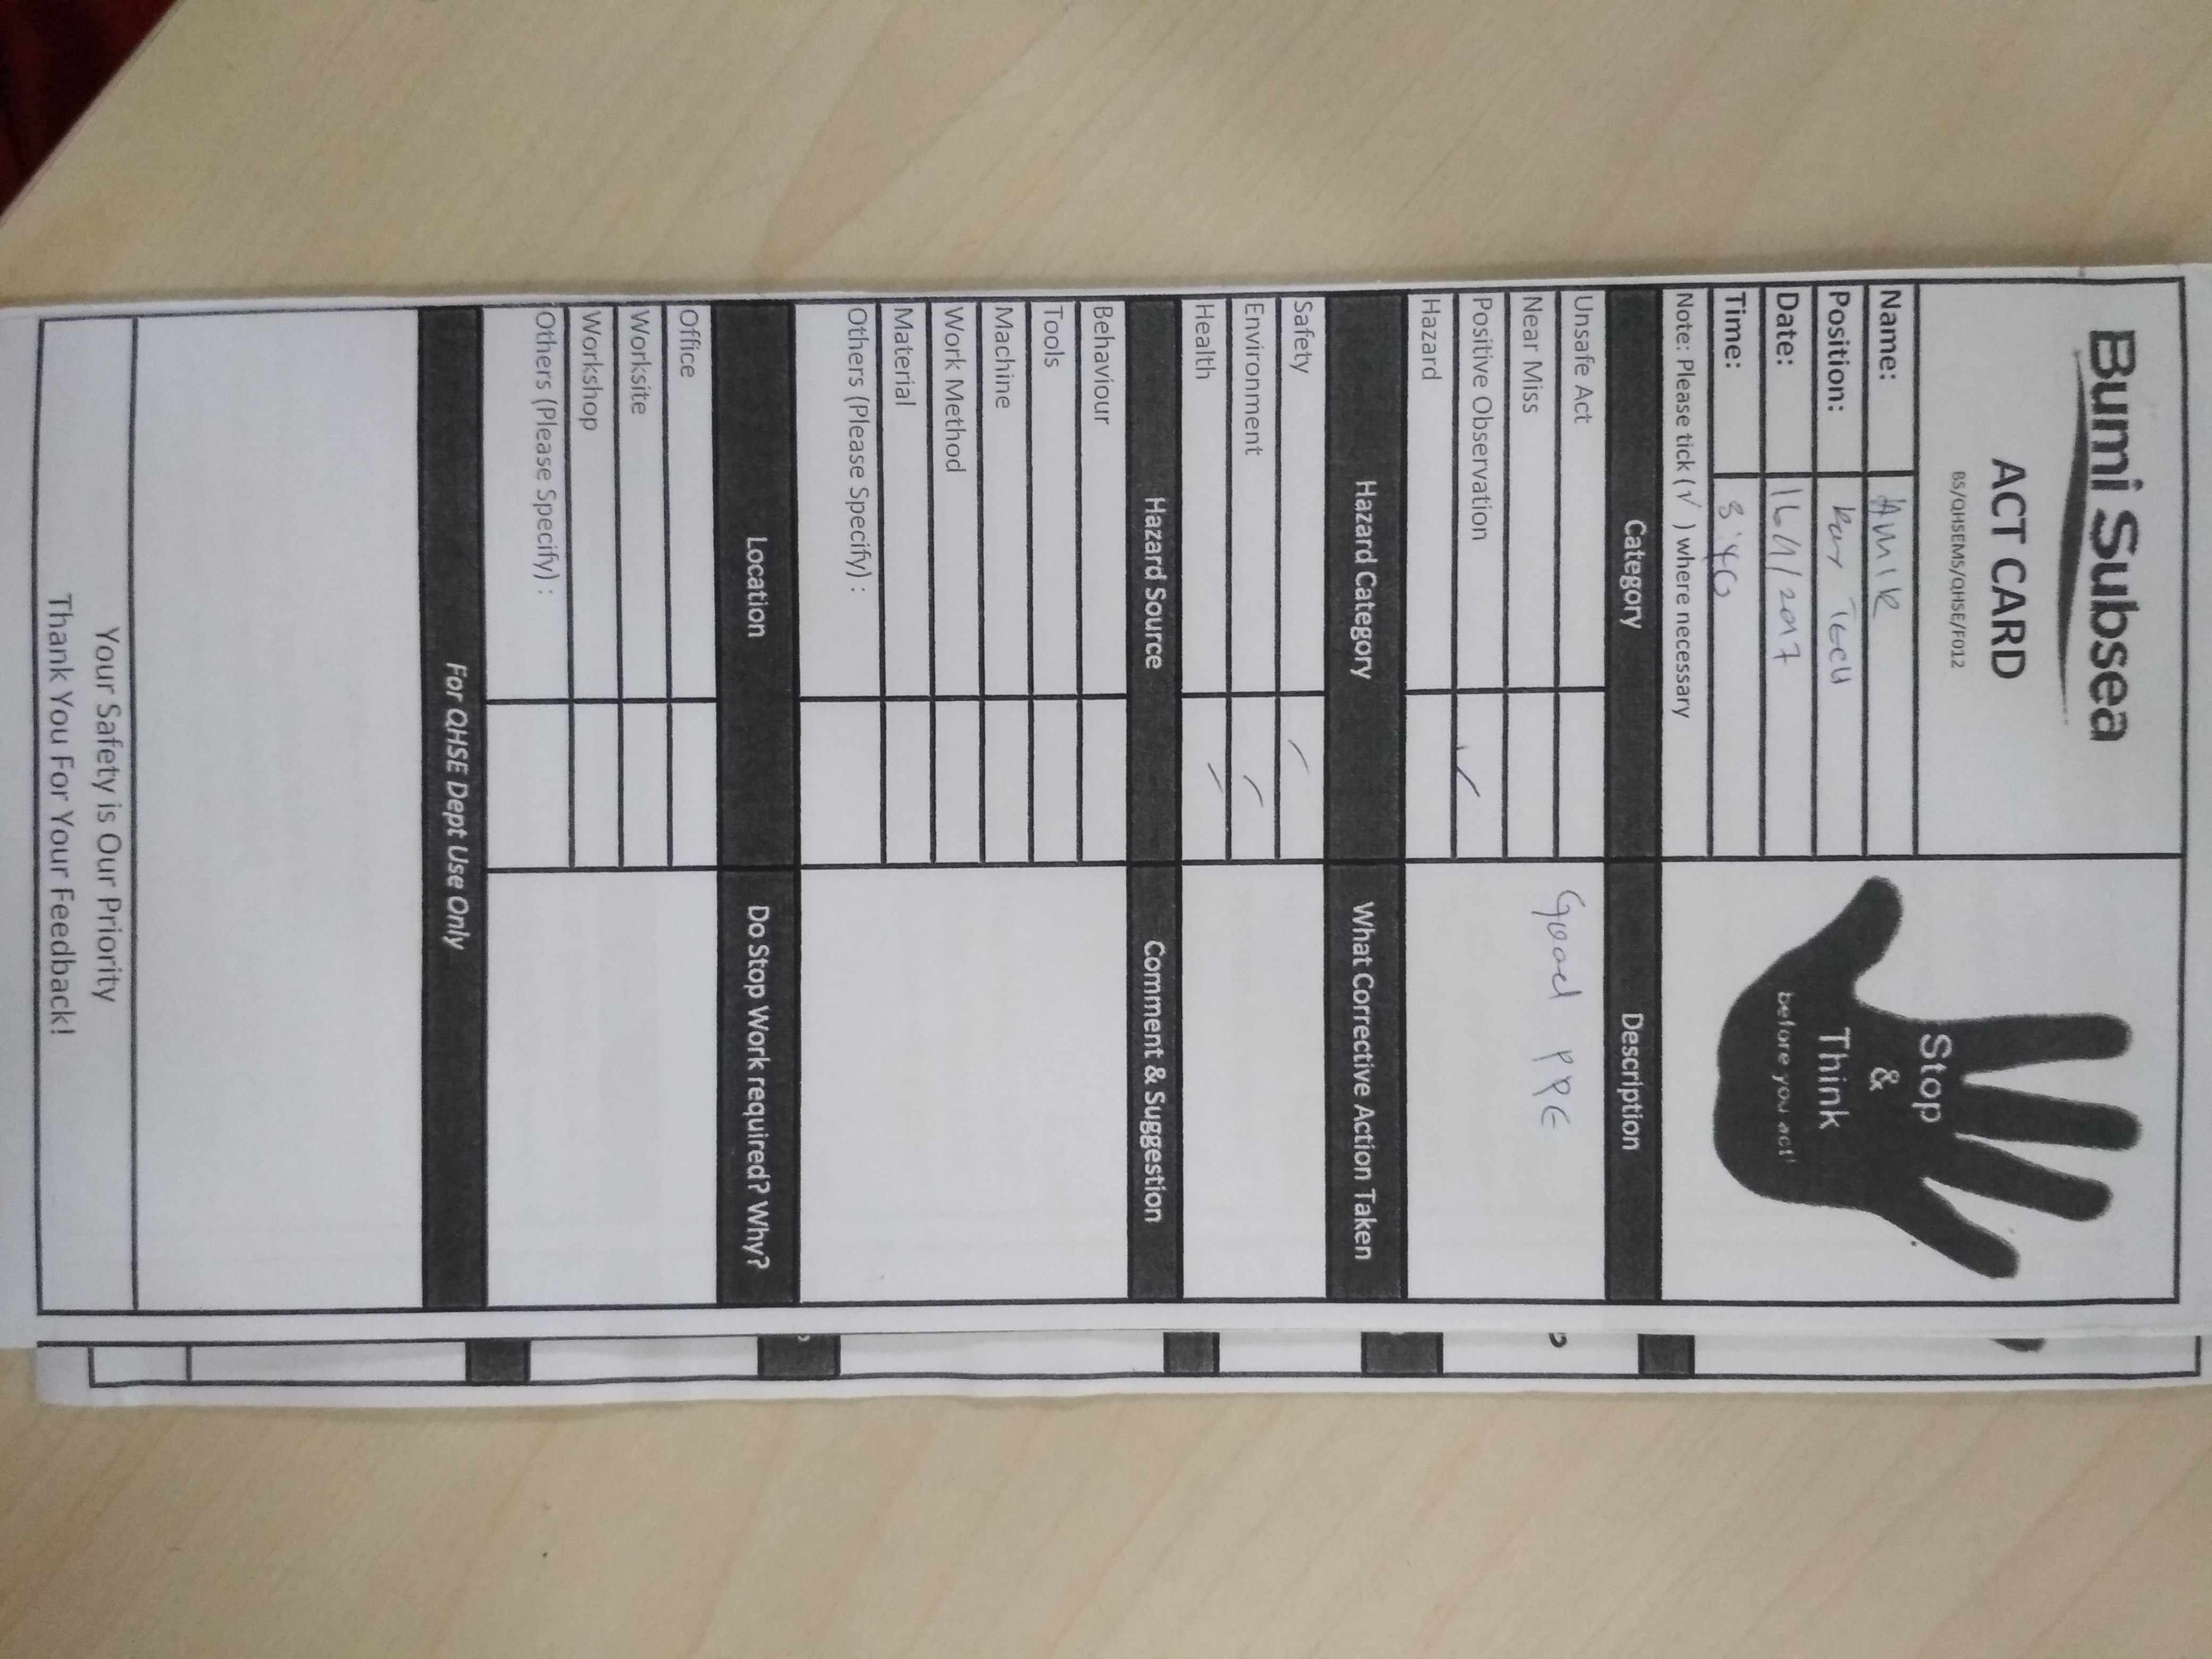 Bumi Subsea
ACT CARD
BS/QHSEMS/QHSE/F012
Stop
&
Think
before you act!
Name: AMIR
Position: Tech
Date: 16/1/2017
Time: 8:40
Note: Please tick (√ ) where necessary
Category Description
Unsafe Act Good PPE
Near Miss
Positive Observation ✓
Hazard
Hazard Category What Corrective Action Taken
Safety /
Environment /
Health /
Hazard Source Comment & Suggestion
Behaviour
Tools
Machine
Work Method
Material
Others (Please Specify) :
Location Do Stop Work required? Why?
Office
Worksite
Workshop
Others (Please Specify) :
For QHSE Dept Use Only
Your Safety is Our Priority
Thank You For Your Feedback!